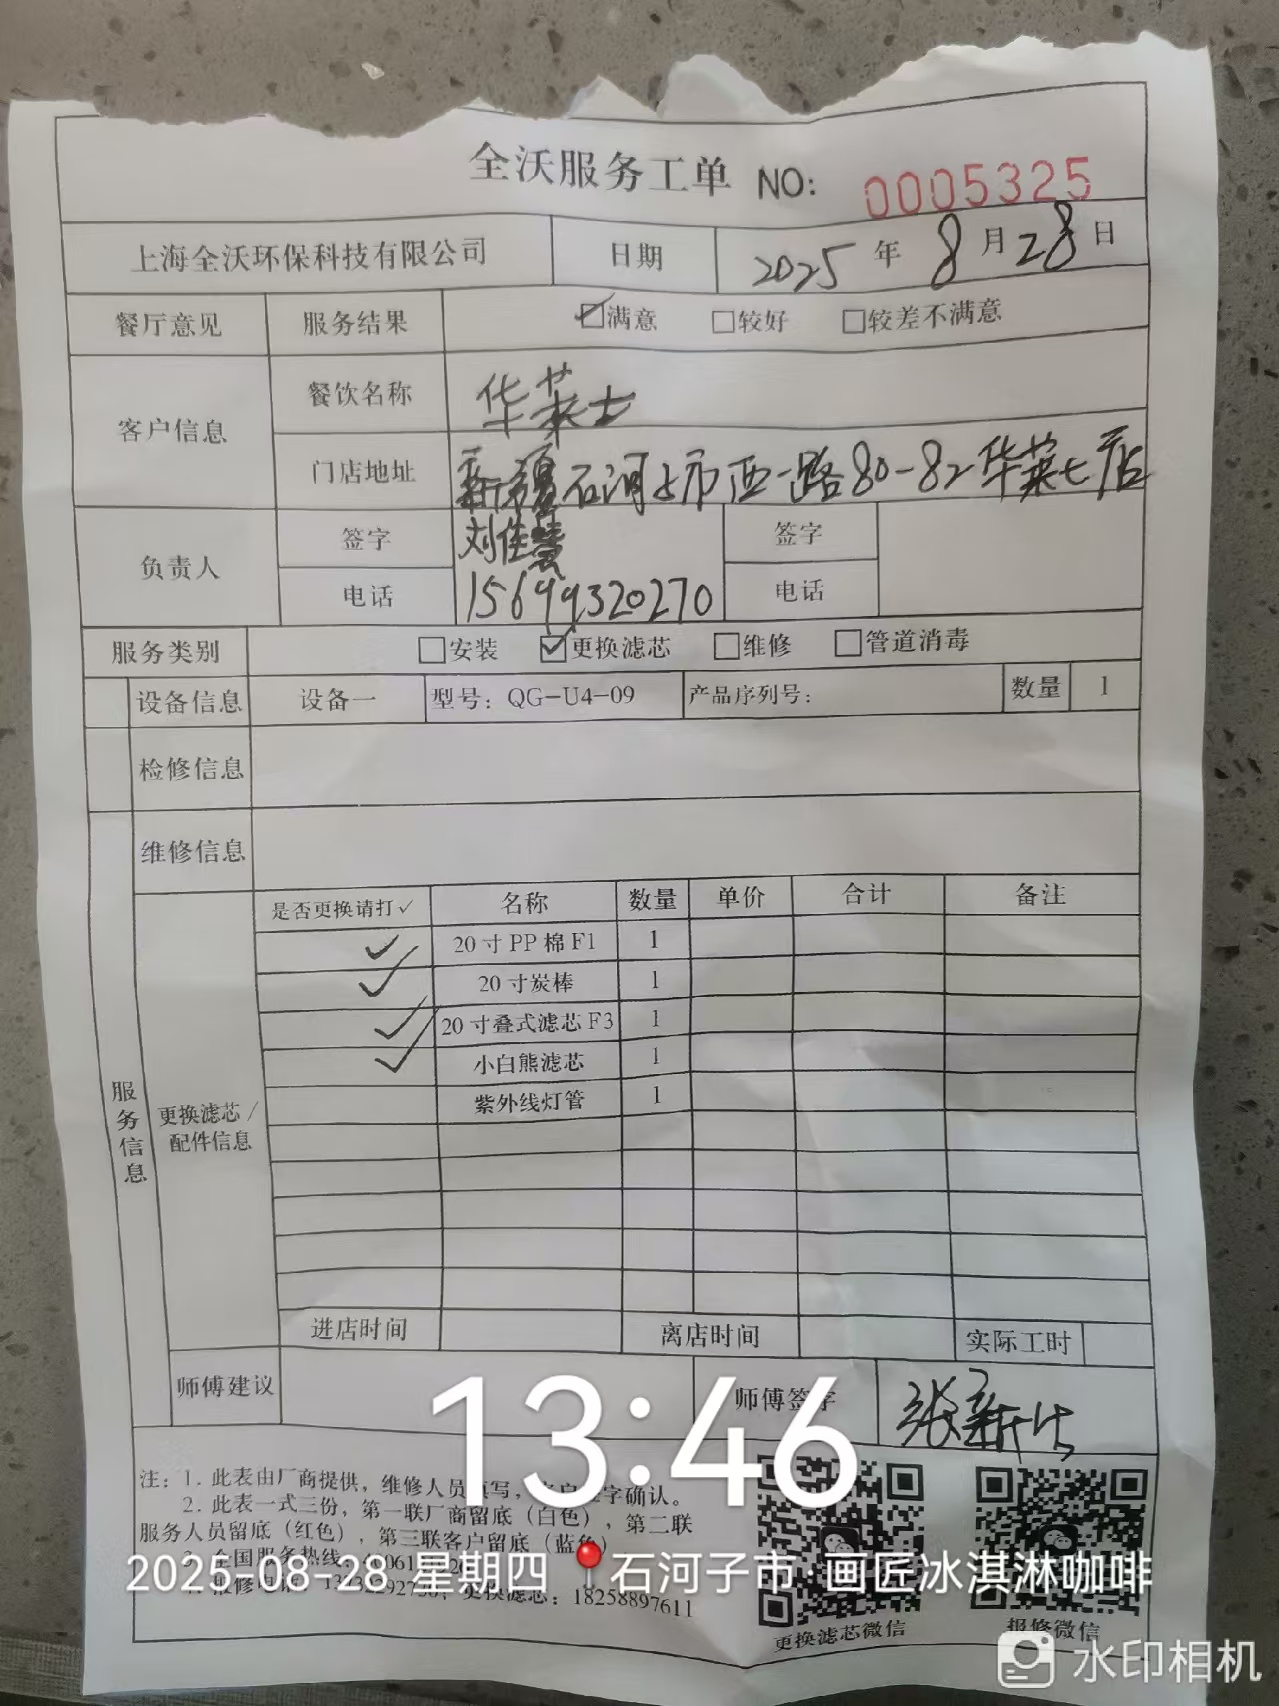 全沃服务工单 NO: 0005325
上海全沃环保科技有限公司 日期 2025 年 8 月 28 日
餐厅意见 服务结果 ☑满意 □较好 □较差不满意
客户信息 餐饮名称 华莱士
门店地址 新疆石河子市西一路80-82华莱士店
负责人 签字 刘佳慧 签字
电话 15699320270 电话
服务类别 □安装 ☑更换滤芯 □维修 □管道消毒
设备信息 设备一 型号: QG-U4-09 产品序列号: 数量 1
检修信息
维修信息
是否更换请打✓ 名称 数量 单价 合计 备注
✓ 20寸PP棉F1 1
✓ 20寸炭棒 1
✓ 20寸叠式滤芯F3 1
✓ 小白熊滤芯 1
紫外线灯管 1
服务信息
更换滤芯/
配件信息
进店时间 离店时间 实际工时
师傅建议 师傅签字 张新
13:46
注: 1. 此表由厂商提供, 维修人员填写, 字确认。
2. 此表一式三份, 第一联厂商留底(白色), 第二联
服务人员留底(红色), 第三联客户留底(蓝色)
全国服务热线:
报修电话 更换滤芯: 18258897611
2025-08-28 星期四 石河子市·画匠冰淇淋咖啡
更换滤芯微信 报修微信
水印相机